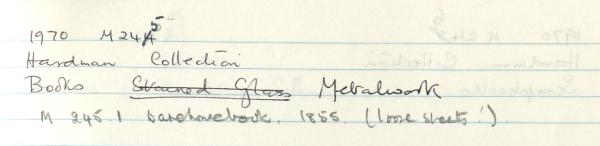 1970 M245
Hardman Collection
Books Stained Glass Metalwork
M 245.1 Warehousebook, 1855 (loose sheets!)